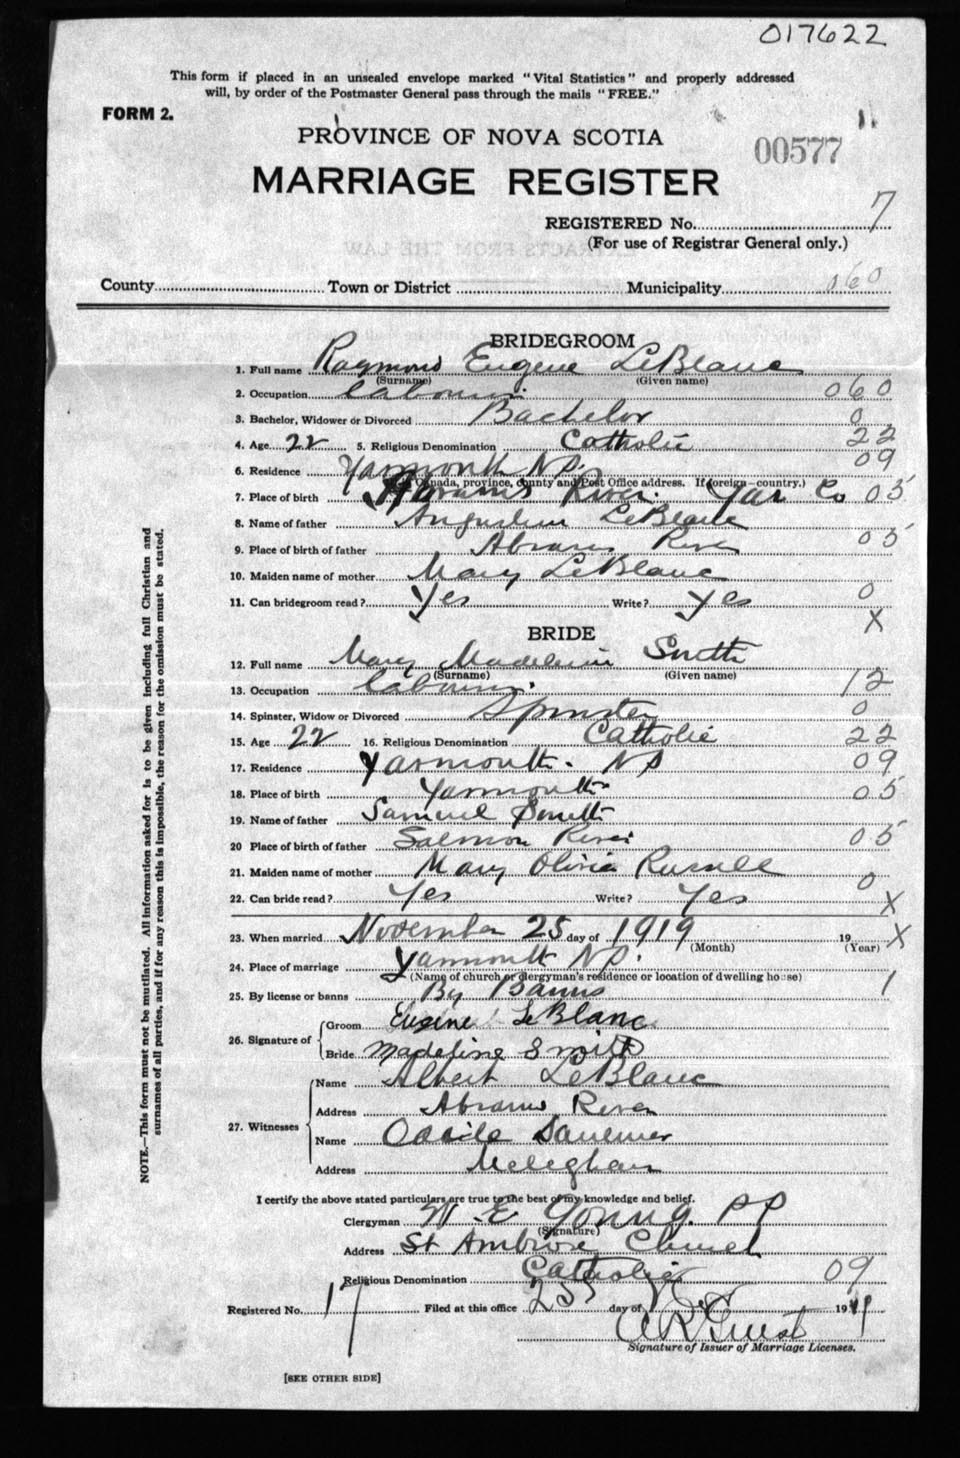 017622
This form if placed in an unsealed envelope marked "Vital Statistics" and properly addressed
will, by order of the Postmaster General pass through the mails "FREE."
FORM 2.
PROVINCE OF NOVA SCOTIA
00577
MARRIAGE REGISTER
REGISTERED No. 7
(For use of Registrar General only.)
County Town or District Municipality 060
BRIDEGROOM
1. Full name Raymond Eugene LeBlanc
(Surname) (Given name)
2. Occupation labourer 060
3. Bachelor, Widower or Divorced Bachelor 0
4. Age 22 5. Religious Denomination Catholic 22
6. Residence Yarmouth NS. 09
(In Canada, province, county and Post Office address. If foreign—country.)
7. Place of birth Abrams River. Yar Co 05
8. Name of father LeBlanc
9. Place of birth of father Abrams River 05
10. Maiden name of mother Mary LeBlanc
11. Can bridegroom read? Yes Write? Yes 0
X
BRIDE
12. Full name Mary Madeleine Smith
(Surname) (Given name)
13. Occupation 12
14. Spinster, Widow or Divorced Spinster 0
15. Age 22 16. Religious Denomination Catholic 22
17. Residence Yarmouth. NS 09
18. Place of birth Yarmouth 05
19. Name of father Samuel Smith
20 Place of birth of father Salmon River 05
21. Maiden name of mother Mary Olivia
22. Can bride read? Yes Write? Yes 0
X
23. When married November 25 day of 1919 19 X
(Month) (Year)
24. Place of marriage Yarmouth NS.
(Name of church or clergyman's residence or location of dwelling house)
25. By license or banns By Banns 1
26. Signature of Groom Eugene LeBlanc
Bride Madeline Smith
27. Witnesses
Name Albert LeBlanc
Address Abrams River
Name Odile Saulnier
Address Meteghan
I certify the above stated particulars are true to the best of my knowledge and belief.
Clergyman W. E. Young. PP
(Signature)
Address St Ambrose Church
Religious Denomination Catholic 09
Registered No. 17 Filed at this office 25 day of 19
Signature of Issuer of Marriage Licenses.
[SEE OTHER SIDE]
NOTE.—This form must not be mutilated. All information asked for is to be given including full Christian and
surnames of all parties, and if for any reason this is impossible, the reason for the omission must be stated.